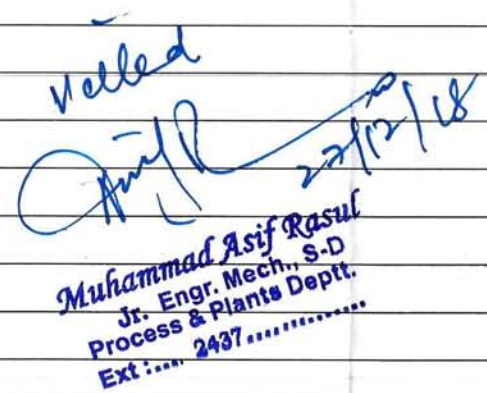 Vetted
27/12/18
Muhammad Asif Rasul
Jr. Engr. Mech., S-D
Process & Plants Deptt.
Ext :.... 2437..............